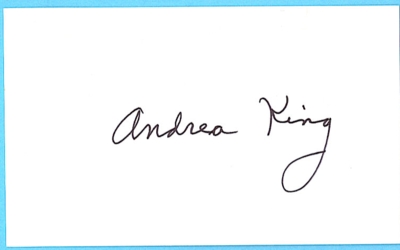 Andrea King